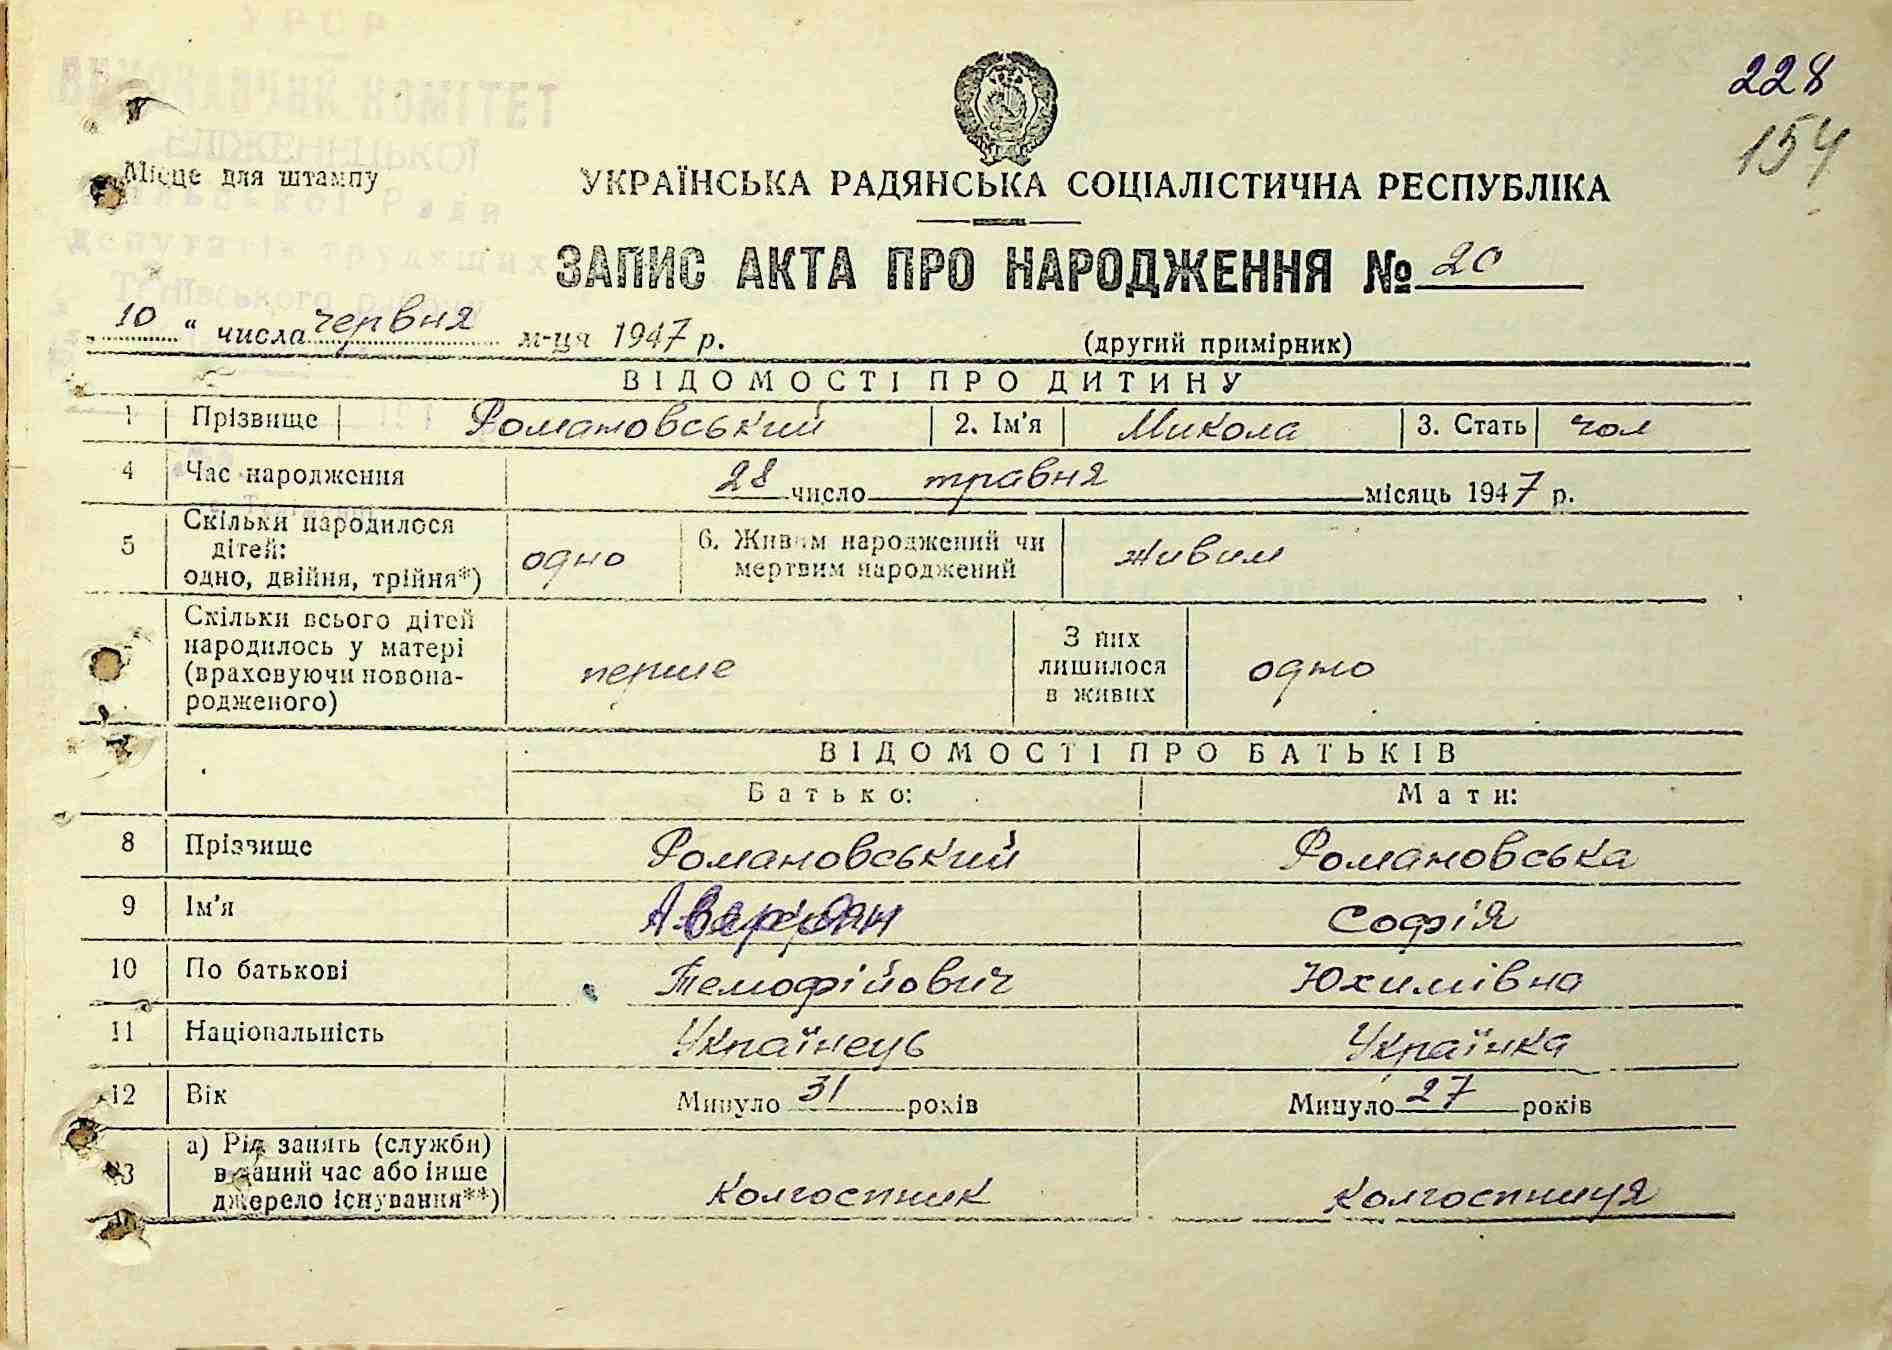 228
154
УРСР
ВИКОНАВЧИЙ КОМІТЕТ
Місце для штампу
сільської Ради
депутатів трудящих
УКРАЇНСЬКА РАДЯНСЬКА СОЦІАЛІСТИЧНА РЕСПУБЛІКА
ЗАПИС АКТА ПРО НАРОДЖЕННЯ № 20
10 “ числа червня м-ця 1947 р. (другий примірник)
ВІДОМОСТІ ПРО ДИТИНУ
1 Прізвище Романовський 2. Ім'я Микола 3. Стать чол
4 Час народження 28 число травня місяць 1947 р.
5 Скільки народилося
дітей:
одно, двійня, трійня*) одно 6. Живим народжений чи
мертвим народжений живим
Скільки всього дітей
народилось у матері
(враховуючи новона-
родженого) перше З них
лишилося
в живих одно
ВІДОМОСТІ ПРО БАТЬКІВ
Батько: Мати:
8 Прізвище Романовський Романовська
9 Ім'я Софія
10 По батькові Темофійович Юхимівна
11 Національність Українець Українка
12 Вік Минуло 31 років Минуло 27 років
13 а) Рід занять (служби)
в даний час або інше
джерело існування**) колгоспник колгоспниця